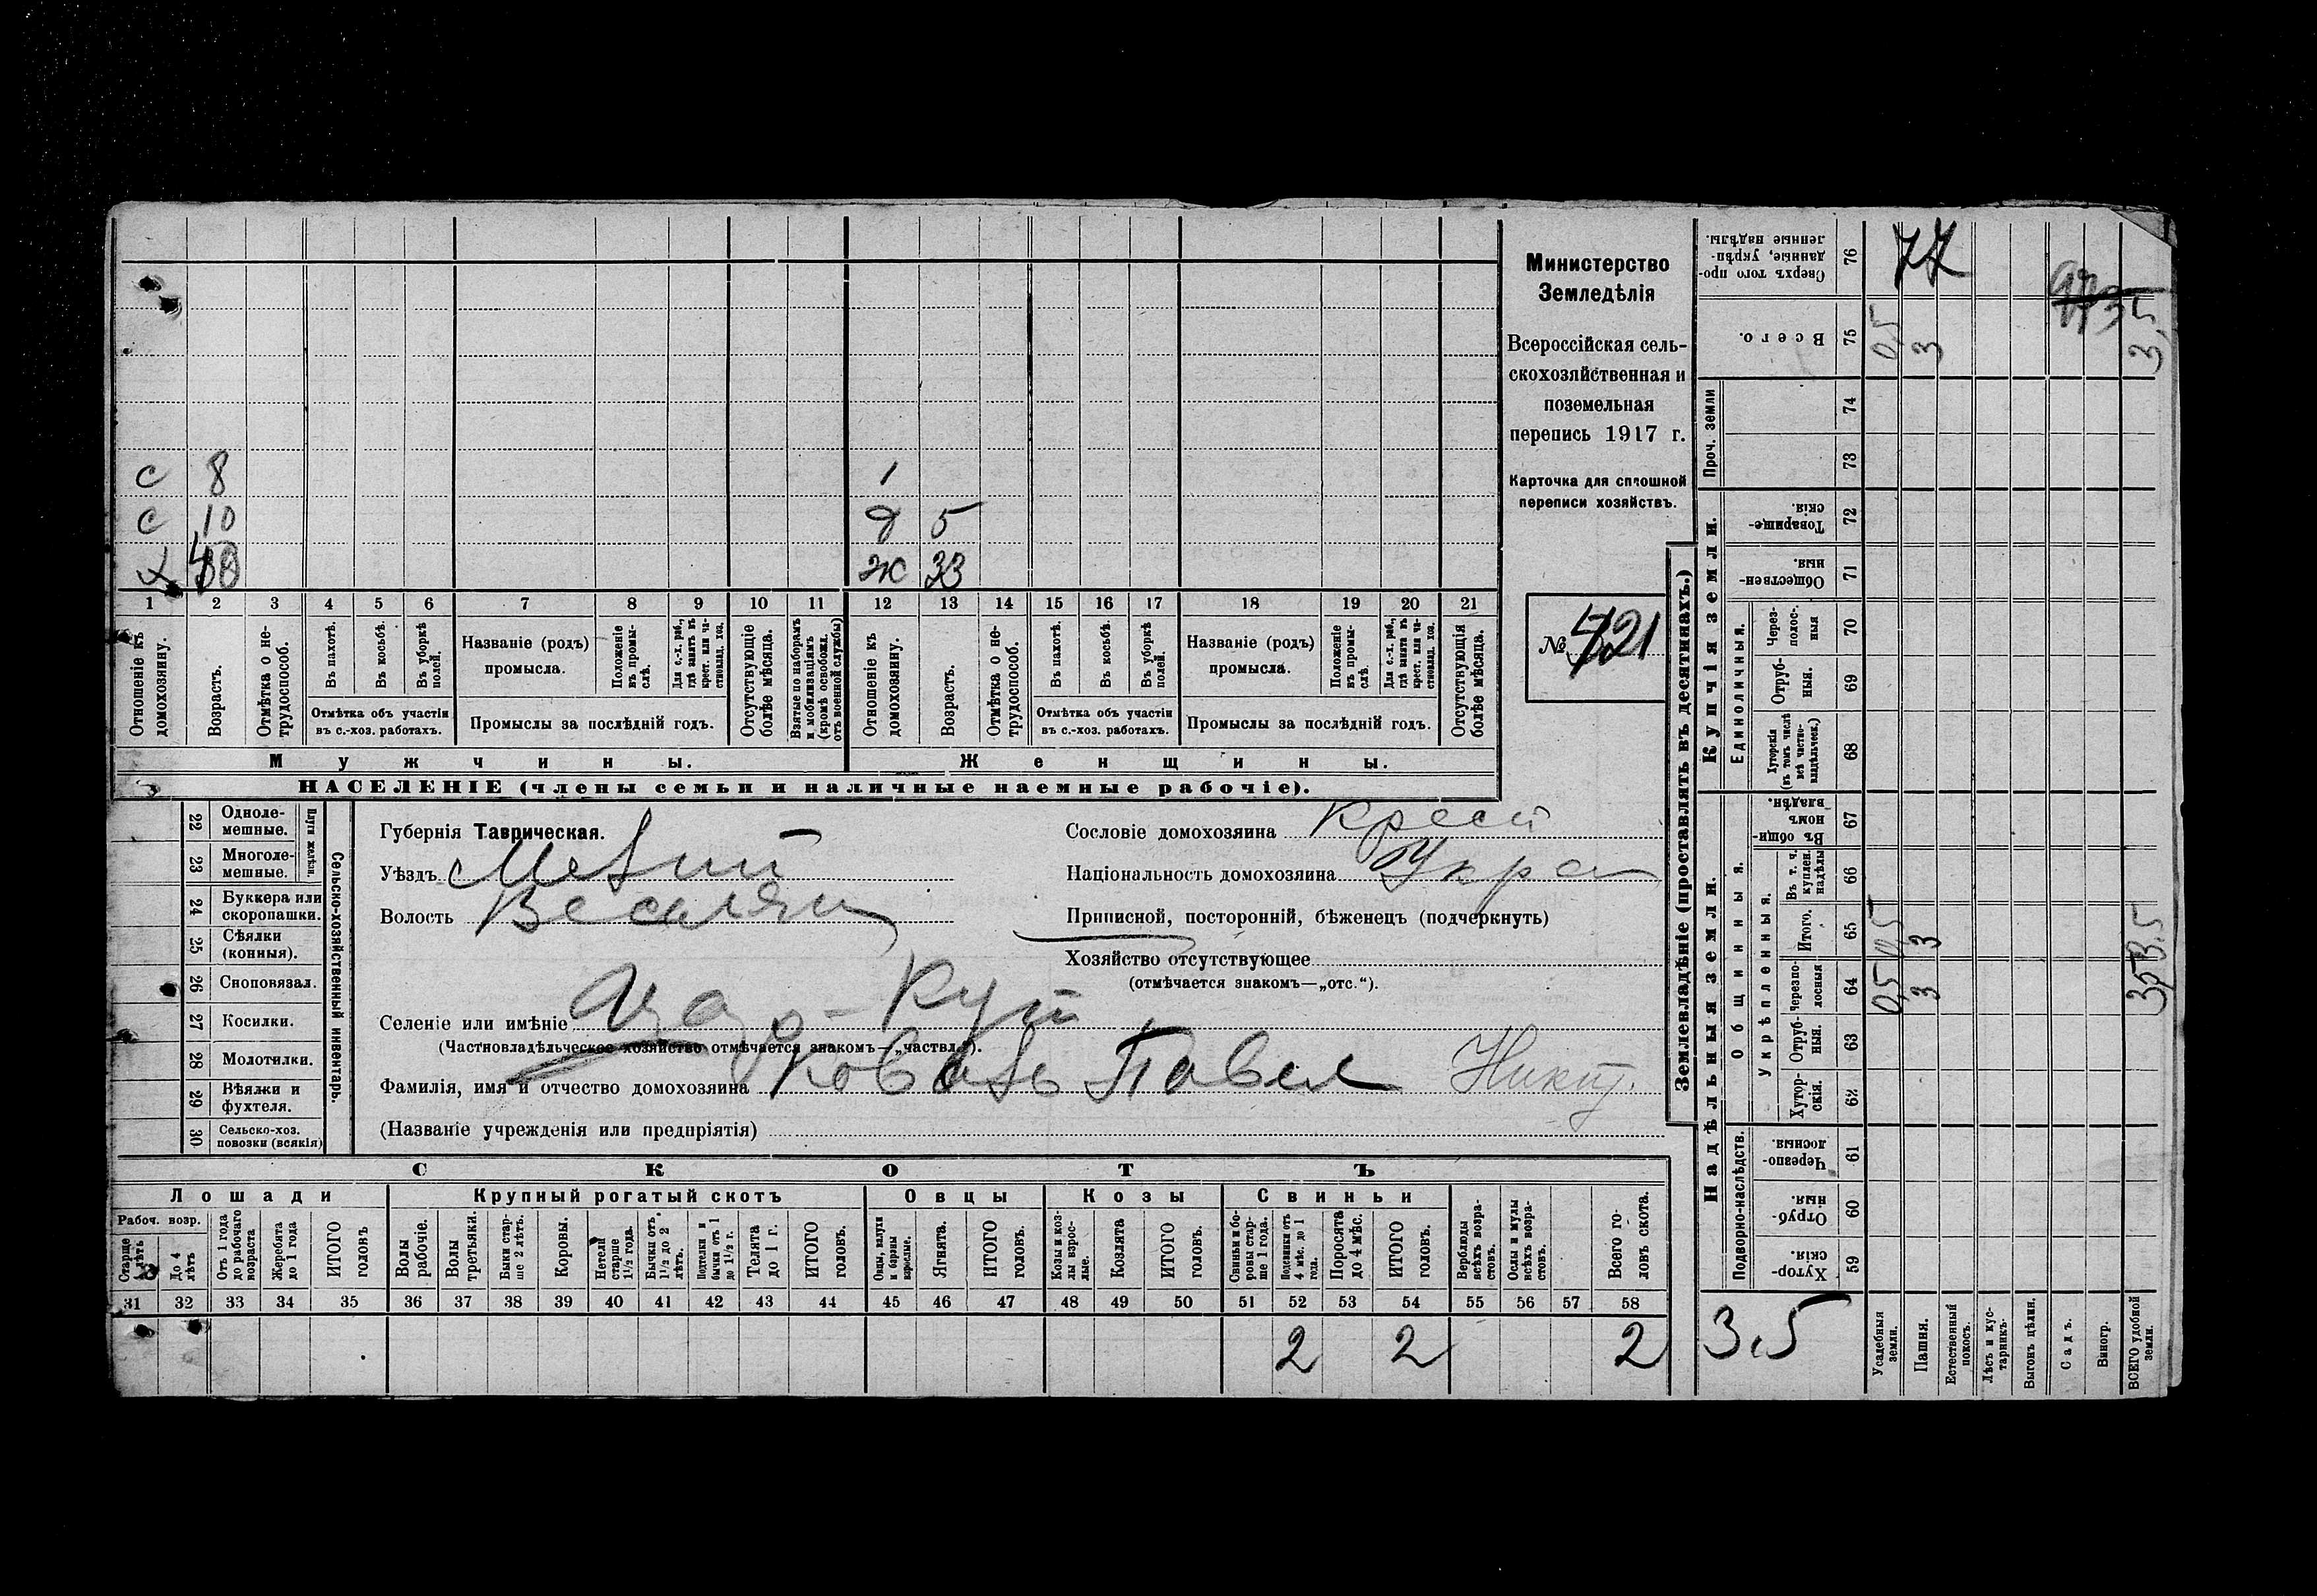 с 8 1
с 10 д 5
х ж 33
1 2 3 4 5 6 7 8 9 10 11 12 13 14 15 16 17 18 19 20 21
Отношеніе къ домохозяину.
Возрастъ.
Отмѣтка о не-трудоспособ.
Въ пахотѣ.
Въ косьбѣ.
Въ уборкѣ полей.
Отмѣтка объ участіи
въ с.-хоз. работахъ.
Названіе (родъ)
промысла.
Положеніе въ промы-слѣ.
Для с.-х. раб., гдѣ занятъ въ крест. или ча-стновлад. хоз.
Промыслы за послѣдній годъ.
Отсутствующіе болѣе мѣсяца.
Взятые по наборамъ и мобилизаціямъ (кромѣ освобожд. отъ военной службы)
Отношеніе къ домохозяину.
Возрастъ.
Отмѣтка о не-трудоспособ.
Въ пахотѣ.
Въ косьбѣ.
Въ уборкѣ полей.
Отмѣтка объ участіи
въ с.-хоз. работахъ.
Названіе (родъ)
промысла.
Положеніе въ промы-слѣ.
Для с.-х. раб., гдѣ занятъ въ крест. или ча-стновлад. хоз.
Промыслы за послѣдній годъ.
Отсутствующія болѣе мѣсяца.
Мужчины.
Женщины.
НАСЕЛЕНІЕ (члены семьи и наличные наемные рабочіе).
Министерство
Земледѣлія
Всероссійская сель-
скохозяйственная и
поземельная
перепись 1917 г.
Карточка для сплошной
переписи хозяйствъ.
№ 421
22 Одноле-мешные.
23 Многоле-мешные.
Плуги желѣзн.
24 Буккера или скоропашки.
25 Сѣялки (конныя).
26 Сноповязал.
27 Косилки.
28 Молотилки.
29 Вѣялки и фухтеля.
30 Сельско-хоз. повозки (всякія)
Сельско-хозяйственный инвентарь.
Губернія Таврическая.
Уѣздъ
Волость
Селеніе или имѣніе
(Частновладѣльческое хозяйство отмѣчается знакомъ—„частвл.“).
Фамилія, имя и отчество домохозяина Коваль Павел Никит.
(Названіе учрежденія или предпріятія)
Сословіе домохозяина Крест
Національность домохозяина Укра
Приписной, посторонній, бѣженецъ (подчеркнуть)
Хозяйство отсутствующее
(отмѣчается знакомъ—„отс.“).
СКОТЪ
Лошади
Крупный рогатый скотъ
Овцы
Козы
Свиньи
Рабоч. возр.
Старше 4 лѣтъ
До 4 лѣтъ
Отъ 1 года до рабочаго возраста
Жеребята до 1 года
ИТОГО головъ
Волы рабочіе.
Волы третьяки.
Быки стар-ше 2 лѣтъ.
Коровы.
Нетели старше 1½ года.
Бычки отъ 1½ до 2 лѣтъ.
Подтелки и бычки отъ 1 до 1½ г.
Телята до 1 г.
ИТОГО головъ.
Овцы, валухи и бараны взрослые.
Ягнята.
ИТОГО головъ.
Козы и коз-лы взрос-лые.
Козлята
ИТОГО головъ.
Свиньи и бо-ровы стар-ше 1 года.
Подсвинки отъ 4 мѣс. до 1 года.
Поросята до 4 мѣс.
ИТОГО головъ.
Верблюды всѣхъ возра-стовъ.
Ослы и мулы всѣхъ возра-стовъ.
Всего го-ловъ скота.
31 32 33 34 35 36 37 38 39 40 41 42 43 44 45 46 47 48 49 50 51 52 53 54 55 56 57 58
2 2 2
Землевладѣніе (проставлять въ десятинахъ.)
Надѣльныя земли.
Купчія земли.
Проч. земли
Подворно-наслѣдств.
Общинныя.
Укрѣпленныя.
Единоличныя.
Сверхъ того про-данные, укрѣп-ленные надѣлы. 76 77
Всего. 75 0,5 3 3,5
74
73
Товарище-скія. 72
Обществен-ныя. 71
Через-полос-ныя 70
Отруб-ныя. 69
Хуторскія (въ томъ числѣ всѣ частно-владѣльческ.) 68
Въ общин-номъ владѣн. 67
Въ т. ч. куплен. надѣлы 66
Итого. 65 0,5 3 3.5
Черезпо-лосныя 64 0,5 3 3,5
Отруб-ныя. 63
Хутор-скія. 62
Черезпо-лосныя. 61
Отруб-ныя. 60
Хутор-скія. 59
3,5
Усадебныя земли.
Пашня.
Естественный покосъ.
Лѣсъ и кус-тарникъ.
Выгонъ цѣлин.
Садъ.
Виногр.
ВСЕГО удобной земли.